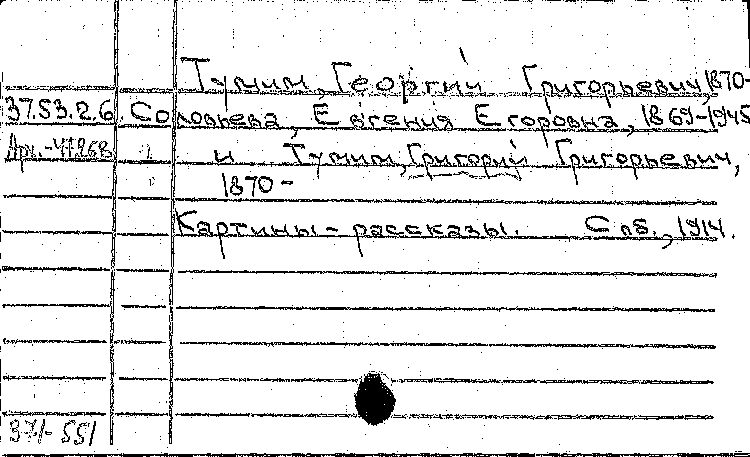 Тумим, Георгий Григорьевич, 1870-
37.53.2.6. Соловьева, Евгения Егоровна, 1869-1945
Арх.-47268 и Тумим, Григорий Григорьевич,
1870-
Картины-рассказы. Спб., 1914.
371-551